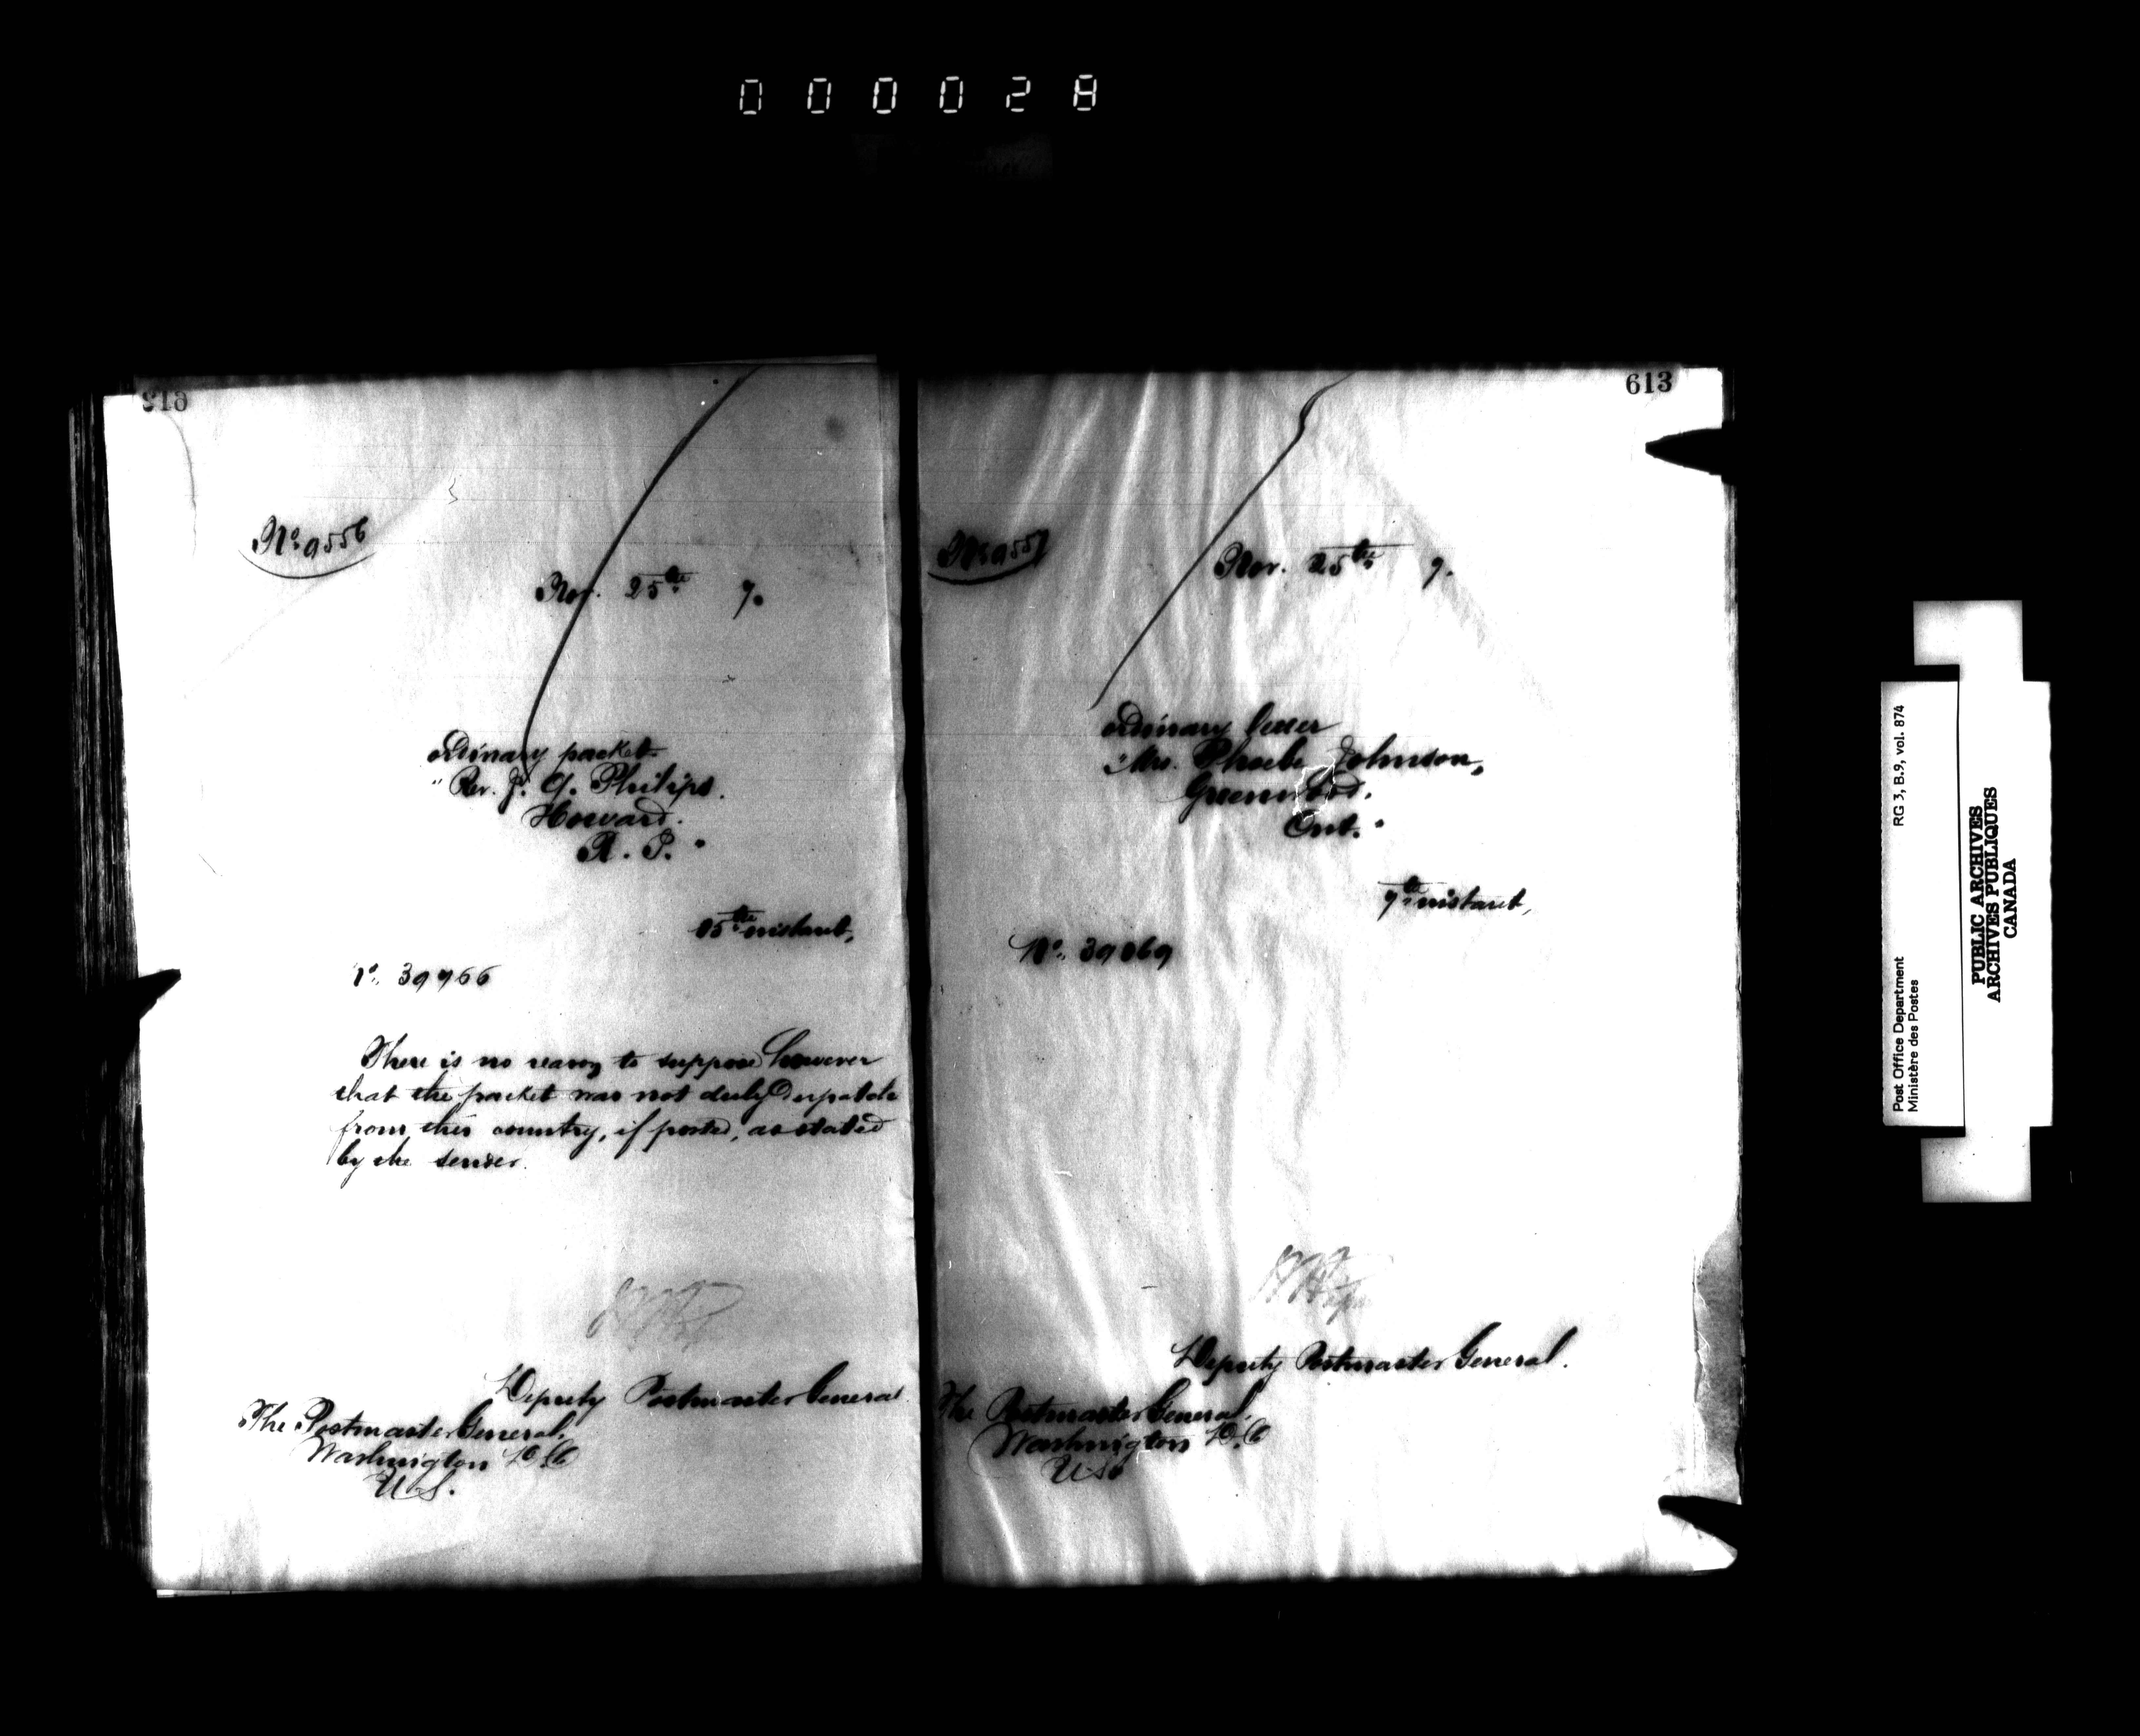 000028
No. 9556
Nov. 25th 7.
ordinary packet
"Rev. J. G. Philips.
Howard.
R. I."
15th instant,
No. 39966
There is no reason to suppose however
that the packet was not duly despatch
from this country, if posted, as stated
by the sender.
Deputy Postmaster General
The Postmaster General,
Washington D.C
U.S.
613
No. 9557
Nov. 25th 7.
ordinary letter
"Mrs. Phoebe Johnson,
Greenwood.
Ont."
7th instant,
No. 39869
Deputy Postmaster General.
The Postmaster General,
Washington D.C
US
Post Office Department RG 3, B.9, vol. 874
Ministère des Postes
PUBLIC ARCHIVES
ARCHIVES PUBLIQUES
CANADA